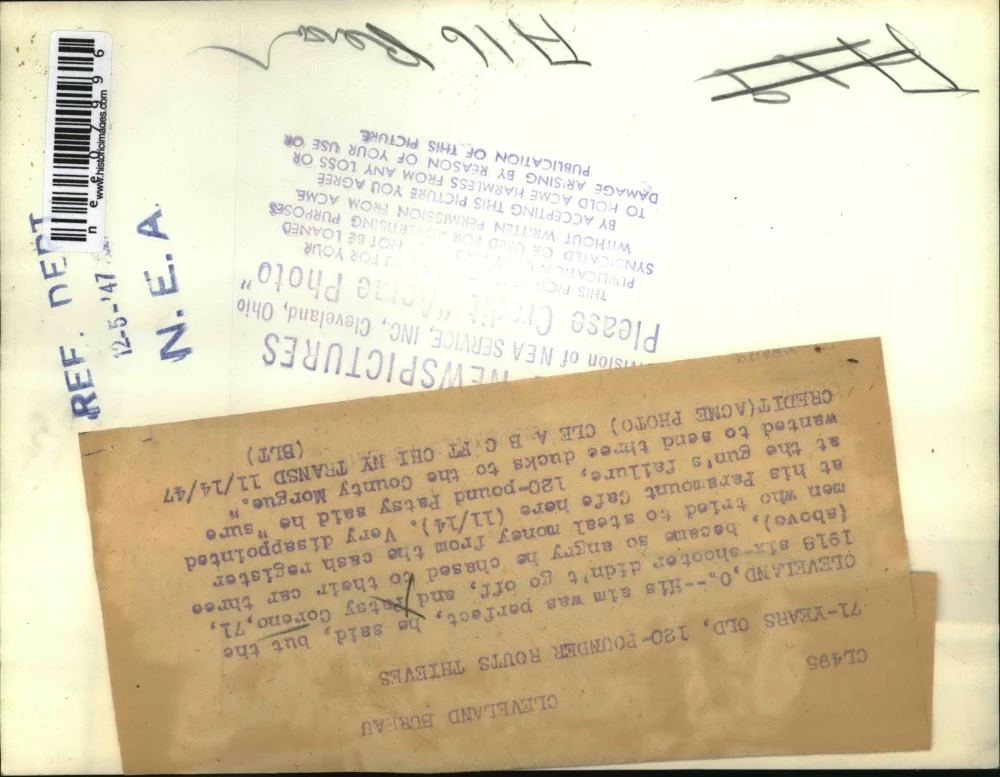 CLEVELAND BUREAU
CL495
71-YEARS OLD, 120-POUNDER ROUTS THIEVES
CLEVELAND, O.--His aim was perfect, he said, but the
1918 six-shooter didn't go off, and Patsy Coreno, 71,
(above), became so angry he chased to their car three
men who tried to steal money from the cash register
at his Paramount Cafe here (11/14). Very disappointed
at the gun's failure, 120-pound Patsy said he "sure
wanted to send three ducks to the County Morgue."
CREDIT(ACME PHOTO) CLE A B C FT CHI NY TRANSD 11/14/47
(BLT)
NEWSPICTURES
Division of NEA SERVICE, INC., Cleveland, Ohio
Please Credit "Acme Photo"
THIS PICTURE YOU FOR YOUR
PUBLICATION ONLY AND NOT BE LOANED
SYNDICATED OR USED FOR ADVERTISING PURPOSES
WITHOUT WRITTEN PERMISSION FROM ACME.
BY ACCEPTING THIS PICTURE YOU AGREE
TO HOLD ACME HARMLESS FROM ANY LOSS OR
DAMAGE ARISING BY REASON OF YOUR USE OR
PUBLICATION OF THIS PICTURE.
REF. DEPT
12-5-'47
N. E. A.
www.historicimages.com
nee07996
A16